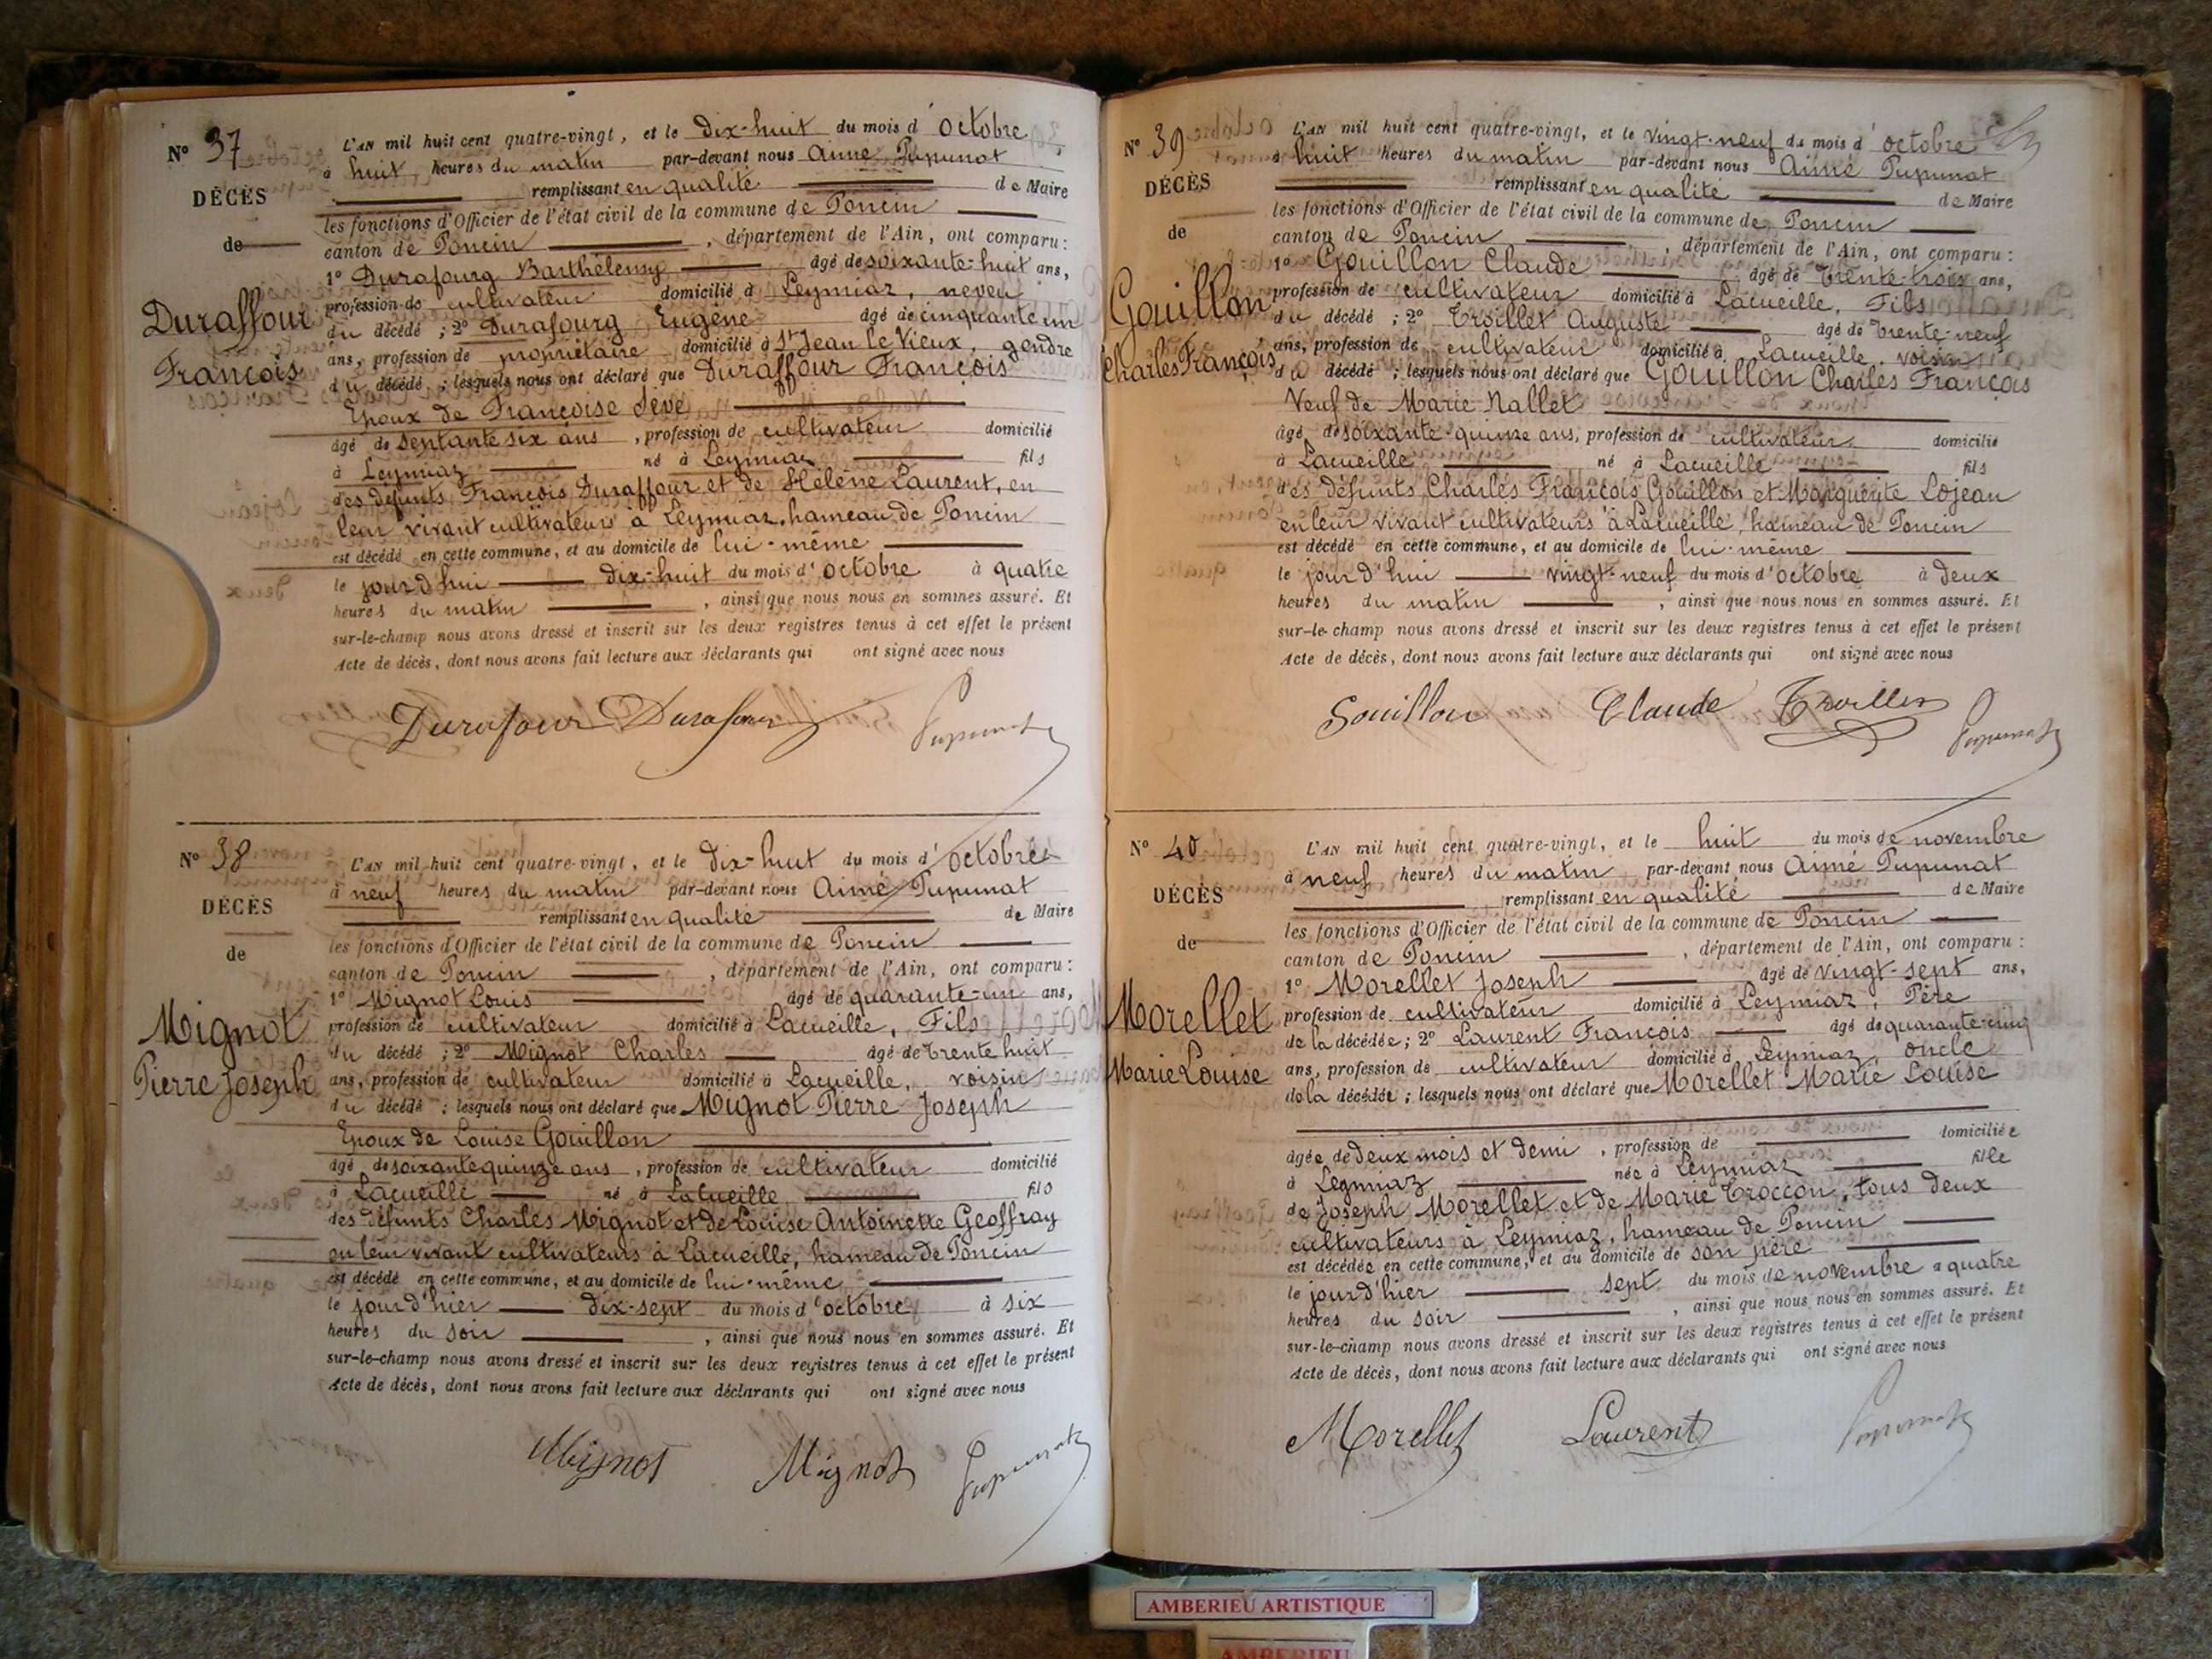 N° 37
DÉCÈS
de
Duraffour
François
L'AN mil huit cent quatre-vingt, et le dix-huit du mois d'octobre,
à huit heures du matin par-devant nous Aimé Pupunat
remplissant en qualité de Maire
les fonctions d'Officier de l'état civil de la commune de Poncin
canton de Poncin, département de l'Ain, ont comparu:
1° Durafourg Barthélemy âgé de soixante-huit ans,
profession de cultivateur domicilié à Leymiaz, neveu
du décédé; 2° Durafourg Eugène âgé de cinquante un
ans, profession de propriétaire domicilié à St Jean le Vieux, gendre
du décédé; lesquels nous ont déclaré que Duraffour François
Epoux de Françoise Sève
âgé de septante six ans, profession de cultivateur domicilié
à Leymiaz né à Leymiaz fils
des défunts François Duraffour et de Hélène Laurent, en
leur vivant cultivateurs à Leymiaz, hameau de Poncin
est décédé en cette commune, et au domicile de lui-même
le jourd'hui dix-huit du mois d'octobre à quatre
heures du matin, ainsi que nous nous en sommes assuré. Et
sur-le-champ nous avons dressé et inscrit sur les deux registres tenus à cet effet le présent
Acte de décès, dont nous avons fait lecture aux déclarants qui ont signé avec nous
Durafour Durafour Pupunat
N° 38
DÉCÈS
de
Mignot
Pierre Joseph
L'AN mil huit cent quatre-vingt, et le dix-huit du mois d'octobre
à neuf heures du matin par-devant nous Aimé Pupunat
remplissant en qualité de Maire
les fonctions d'Officier de l'état civil de la commune de Poncin
canton de Poncin, département de l'Ain, ont comparu:
1° Mignot Louis âgé de quarante-un ans,
profession de cultivateur domicilié à Lacueille, Fils
du décédé; 2° Mignot Charles âgé de trente huit
ans, profession de cultivateur domicilié à Lacueille, voisin
du décédé; lesquels nous ont déclaré que Mignot Pierre Joseph
Epoux de Louise Gouillon
âgé de soixante quinze ans, profession de cultivateur domicilié
à Lacueille né à Lacueille fils
des défunts Charles Mignot et de Louise Antoinette Geoffray
en leur vivant cultivateurs à Lacueille, hameau de Poncin
est décédé en cette commune, et au domicile de lui-même
le jourd'hier dix-sept du mois d'octobre à six
heures du soir, ainsi que nous nous en sommes assuré. Et
sur-le-champ nous avons dressé et inscrit sur les deux registres tenus à cet effet le présent
Acte de décès, dont nous avons fait lecture aux déclarants qui ont signé avec nous
Mignot Mignot Pupunat
N° 39
DÉCÈS
de
Gouillon
Charles François
L'AN mil huit cent quatre-vingt, et le vingt-neuf du mois d'octobre
à huit heures du matin par-devant nous Aimé Pupunat
remplissant en qualité de Maire
les fonctions d'Officier de l'état civil de la commune de Poncin
canton de Poncin, département de l'Ain, ont comparu:
1° Gouillon Claude âgé de trente-trois ans,
profession de cultivateur domicilié à Lacueille, Fils
du décédé; 2° Troillet Auguste âgé de trente-neuf
ans, profession de cultivateur domicilié à Lacueille, voisin
du décédé; lesquels nous ont déclaré que Gouillon Charles François
Veuf de Marie Nallet
âgé de soixante-quinze ans, profession de cultivateur domicilié
à Lacueille né à Lacueille fils
des défunts Charles François Gouillon et Marguerite Lojean
en leur vivant cultivateurs à Lacueille, hameau de Poncin
est décédé en cette commune, et au domicile de lui-même
le jourd'hui vingt-neuf du mois d'octobre à deux
heures du matin, ainsi que nous nous en sommes assuré. Et
sur-le-champ nous avons dressé et inscrit sur les deux registres tenus à cet effet le présent
Acte de décès, dont nous avons fait lecture aux déclarants qui ont signé avec nous
Gouillon Claude Troillet Pupunat
N° 40
DÉCÈS
de
Morellet
Marie Louise
L'AN mil huit cent quatre-vingt, et le huit du mois de novembre
à neuf heures du matin par-devant nous Aimé Pupunat
remplissant en qualité de Maire
les fonctions d'Officier de l'état civil de la commune de Poncin
canton de Poncin, département de l'Ain, ont comparu:
1° Morellet Joseph âgé de vingt-sept ans,
profession de cultivateur domicilié à Leymiaz, Père
de la décédée; 2° Laurent François âgé de quarante-cinq
ans, profession de cultivateur domicilié à Leymiaz, oncle
de la décédée; lesquels nous ont déclaré que Morellet Marie Louise
âgée de deux mois et demi, profession de domiciliée
à Leymiaz née à Leymiaz fille
de Joseph Morellet et de Marie Troccon, tous deux
cultivateurs à Leymiaz, hameau de Poncin
est décédée en cette commune, et au domicile de son père
le jourd'hier sept du mois de novembre à quatre
heures du soir, ainsi que nous nous en sommes assuré. Et
sur-le-champ nous avons dressé et inscrit sur les deux registres tenus à cet effet le présent
Acte de décès, dont nous avons fait lecture aux déclarants qui ont signé avec nous
Morellet Laurent Pupunat
AMBERIEU ARTISTIQUE
AMBERIEU